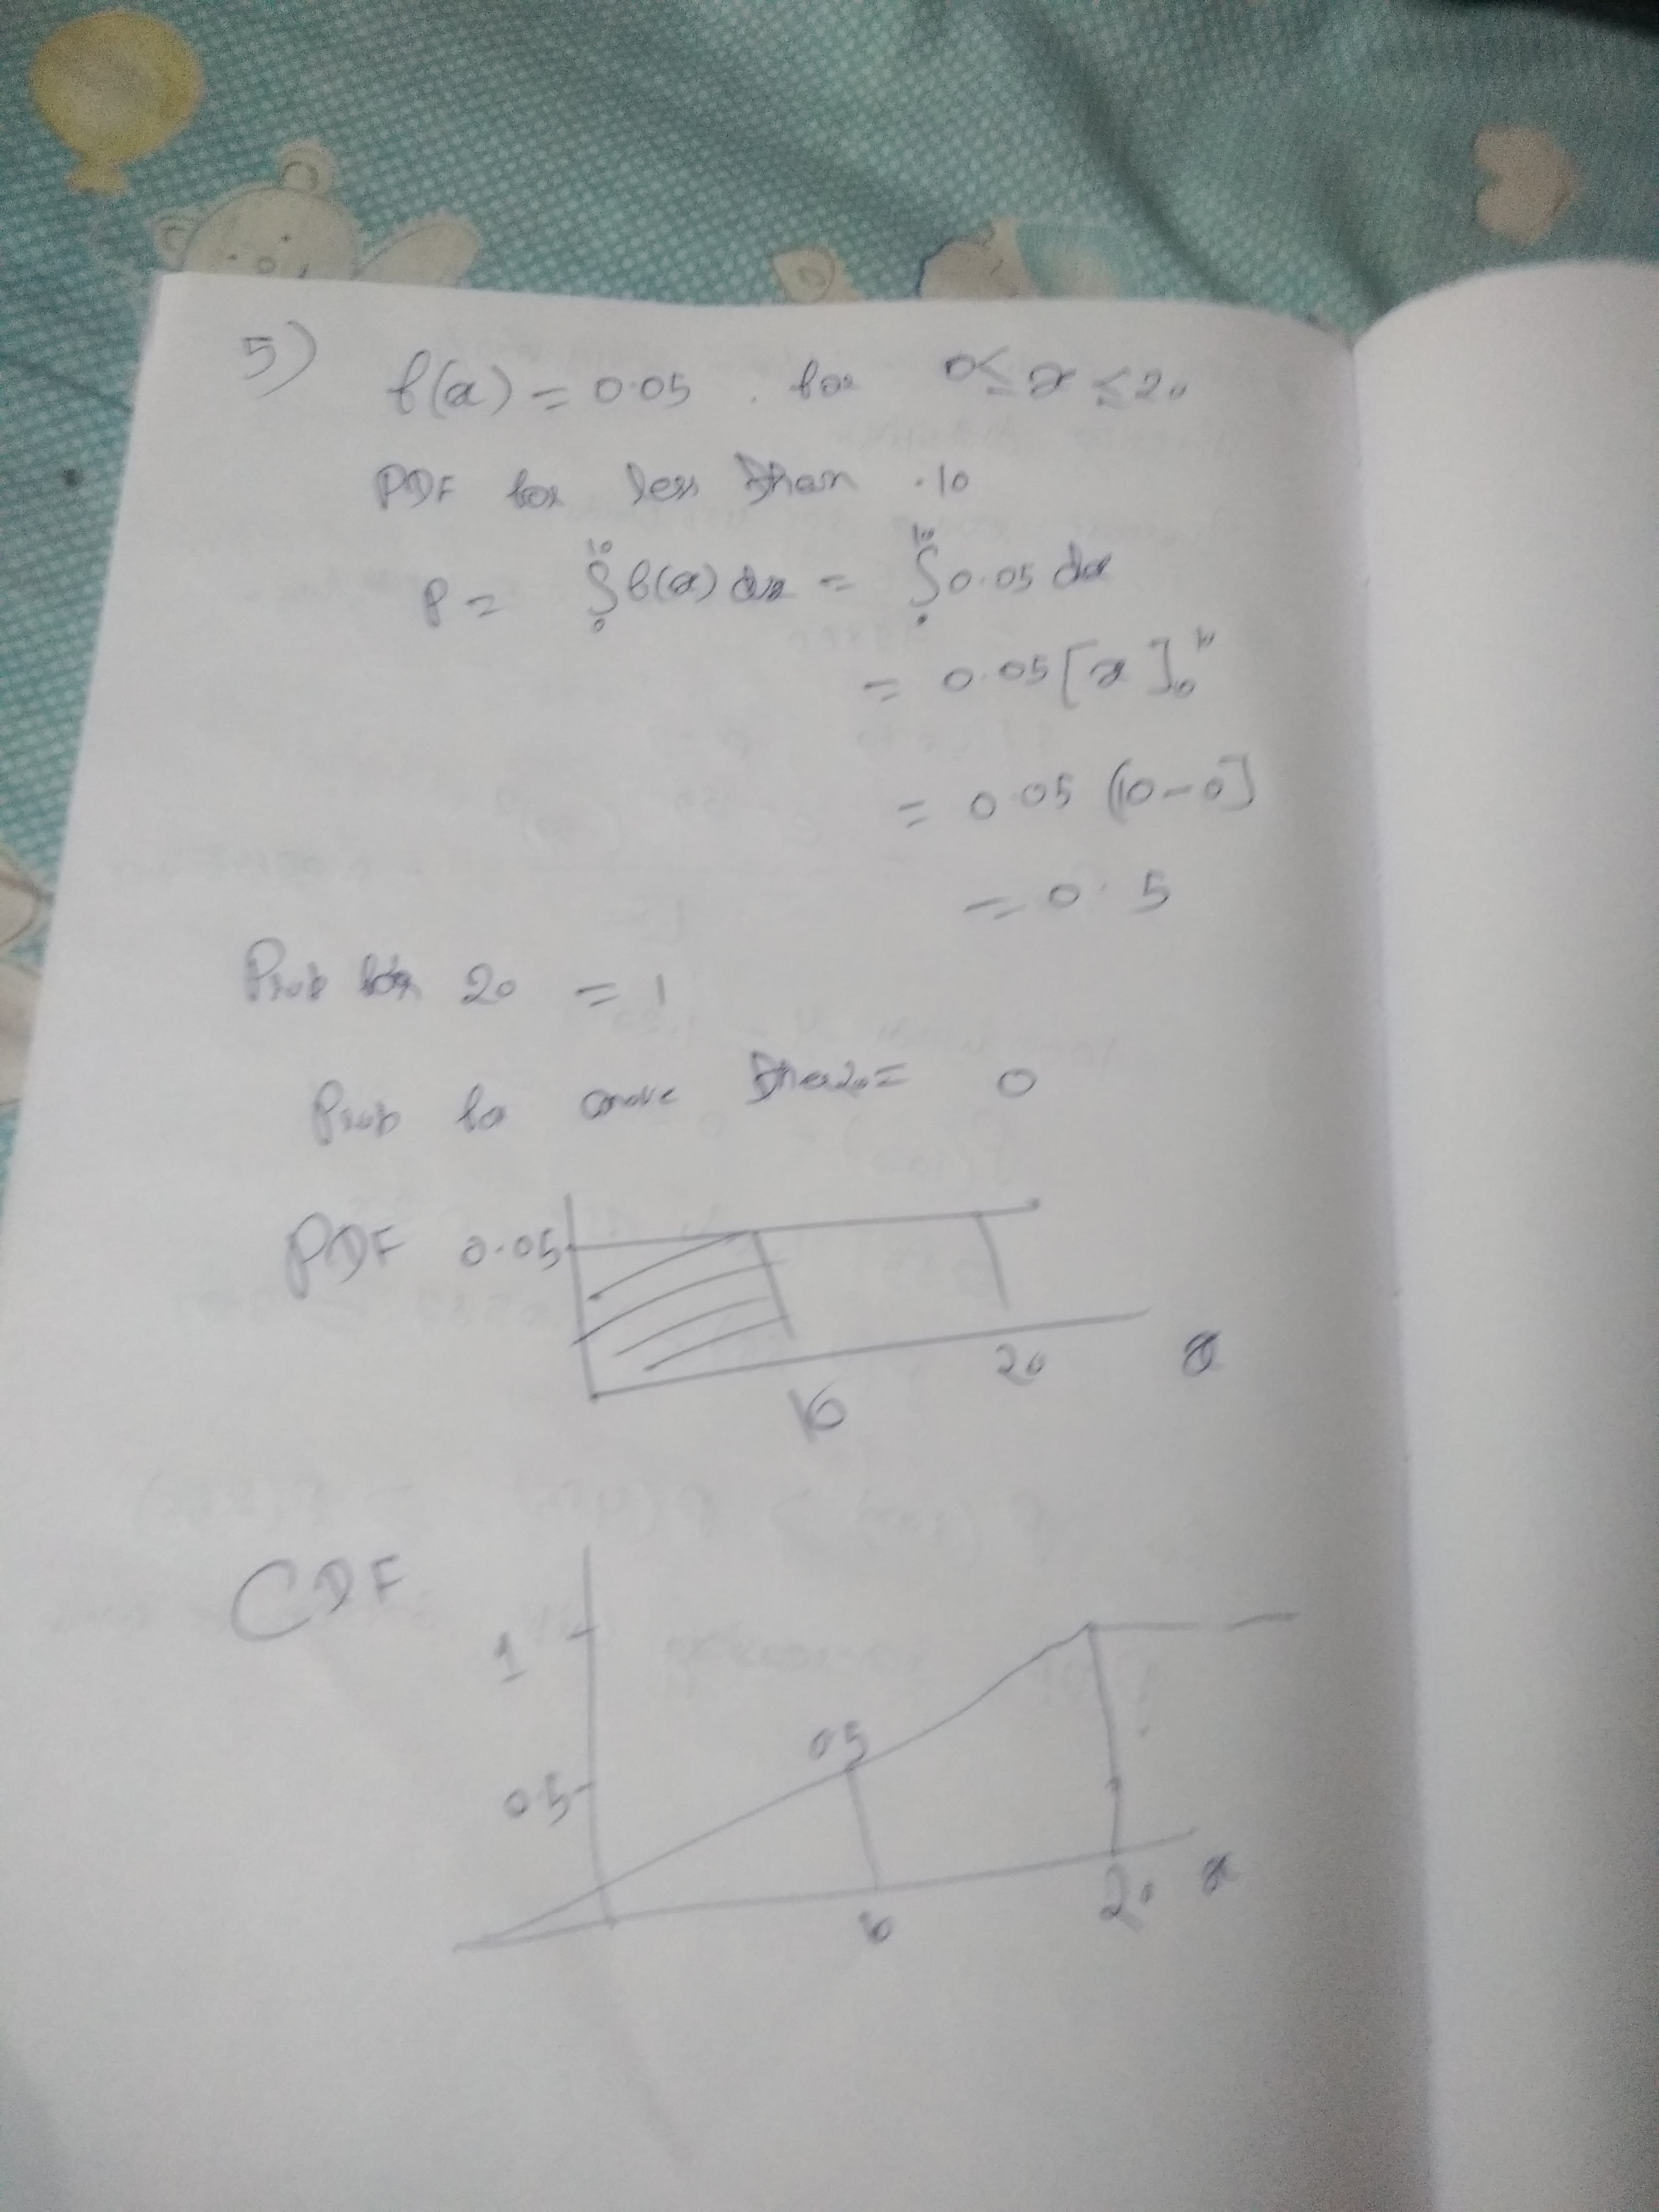 5) f(x) = 0.05 . for 0 ≤ x ≤ 20
PDF for less than .10
P = ∫₀¹⁰ f(x) dx = ∫₀¹⁰ 0.05 dx
= 0.05 [x]₀¹⁰
= 0.05 (10-0]
= 0.5
Prob for 20 = 1
Prob for more than 20 = 0
PDF 0.05
10 20 x
CDF
1
0.5
0.5
10 20 x